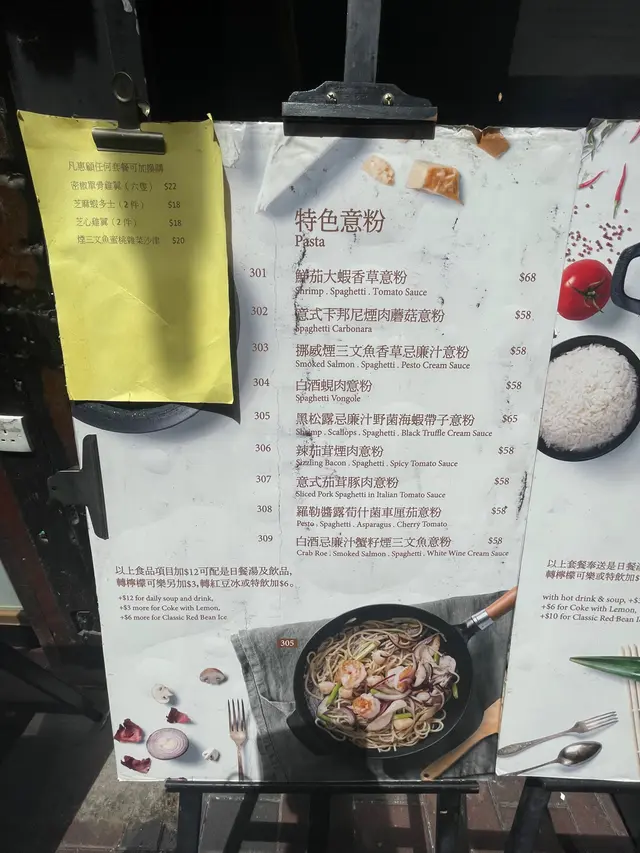 凡惠顧任何套餐可加購購
密椒單骨雞翼（六隻） $22
芝麻蝦多士（2件） $18
芝心雞翼（2件） $18
煙三文魚蜜桃雜菜沙律 $20
特色意粉
Pasta
301 鮮茄大蝦香草意粉 $68
Shrimp . Spaghetti . Tomato Sauce
302 意式卡邦尼煙肉蘑菇意粉 $58
Spaghetti Carbonara
303 挪威煙三文魚香草忌廉汁意粉 $58
Smoked Salmon . Spaghetti . Pesto Cream Sauce
304 白酒蜆肉意粉 $58
Spaghetti Vongole
305 黑松露忌廉汁野菌海蝦帶子意粉 $65
Shrimp . Scallops . Spaghetti . Black Truffle Cream Sauce
306 辣茄茸煙肉意粉 $58
Sizzling Bacon . Spaghetti . Spicy Tomato Sauce
307 意式茄茸豚肉意粉 $58
Sliced Pork Spaghetti in Italian Tomato Sauce
308 羅勒醬露荀什菌車厘茄意粉 $58
Pesto . Spaghetti . Asparagus . Cherry Tomato
309 白酒忌廉汁蟹籽煙三文魚意粉 $58
Crab Roe . Smoked Salmon . Spaghetti . White Wine Cream Sauce
以上食品項目加$12可配是日餐湯及飲品,
轉檸檬可樂另加$3,轉紅豆冰或特飲加$6。
+$12 for daily soup and drink,
+$3 more for Coke with Lemon,
+$6 more for Classic Red Bean Ice
305
以上套餐奉送是日餐湯
轉檸檬可樂或特飲加$
with hot drink & soup, +$3
+$6 for Coke with Lemon,
+$10 for Classic Red Bean I